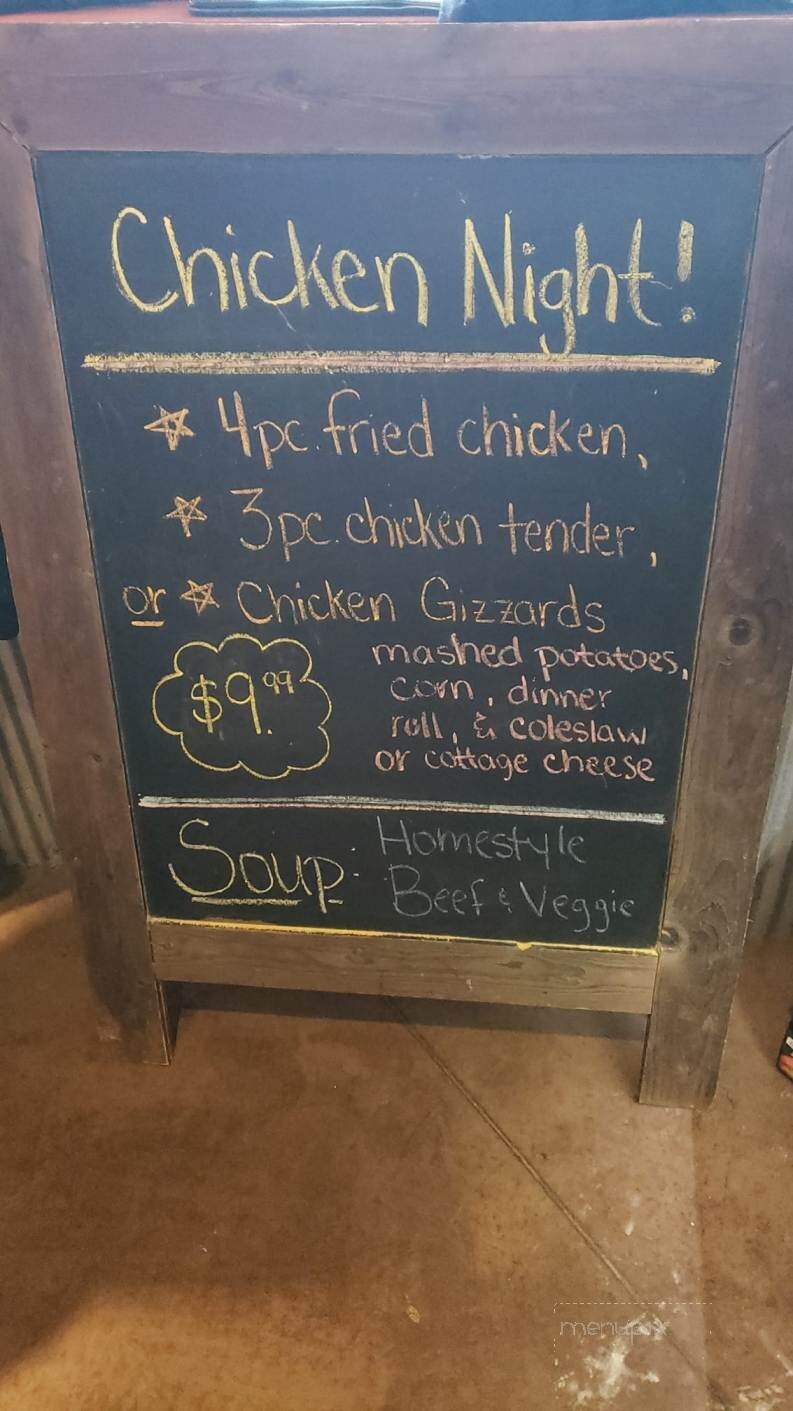 Chicken Night!
4pc. fried chicken,
3pc. chicken tender,
or Chicken Gizzards
$9.99
mashed potatoes,
corn, dinner
roll, & coleslaw
or cottage cheese
Soup: Homestyle
Beef & Veggie
menupix